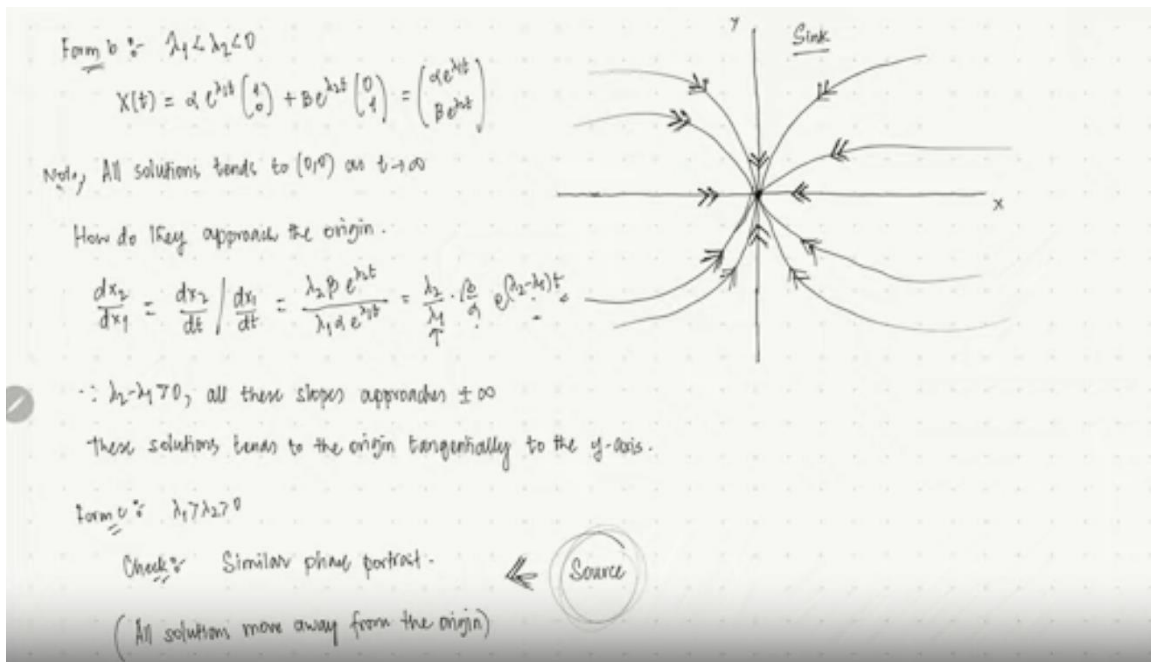 Form b :- λ₁ < λ₂ < 0
X(t) = α e^{λ₁t} (1 0) + β e^{λ₂t} (0 1) = (αe^{λ₁t} βe^{λ₂t})
Note, All solutions tends to (0,0) as t→∞
How do they approach the origin.
dx₂/dx₁ = dx₂/dt / dx₁/dt = λ₂ β e^{λ₂t} / λ₁ α e^{λ₁t} = λ₂/λ₁ · β/α e^{(λ₂-λ₁)t}
∵ λ₂-λ₁>0, all these slopes approaches ±∞
These solutions tends to the origin tangentially to the y-axis.
Form c :- λ₁>λ₂>0
Check :- Similar phase portrait.
Source
(All solutions move away from the origin)
y
Sink
x